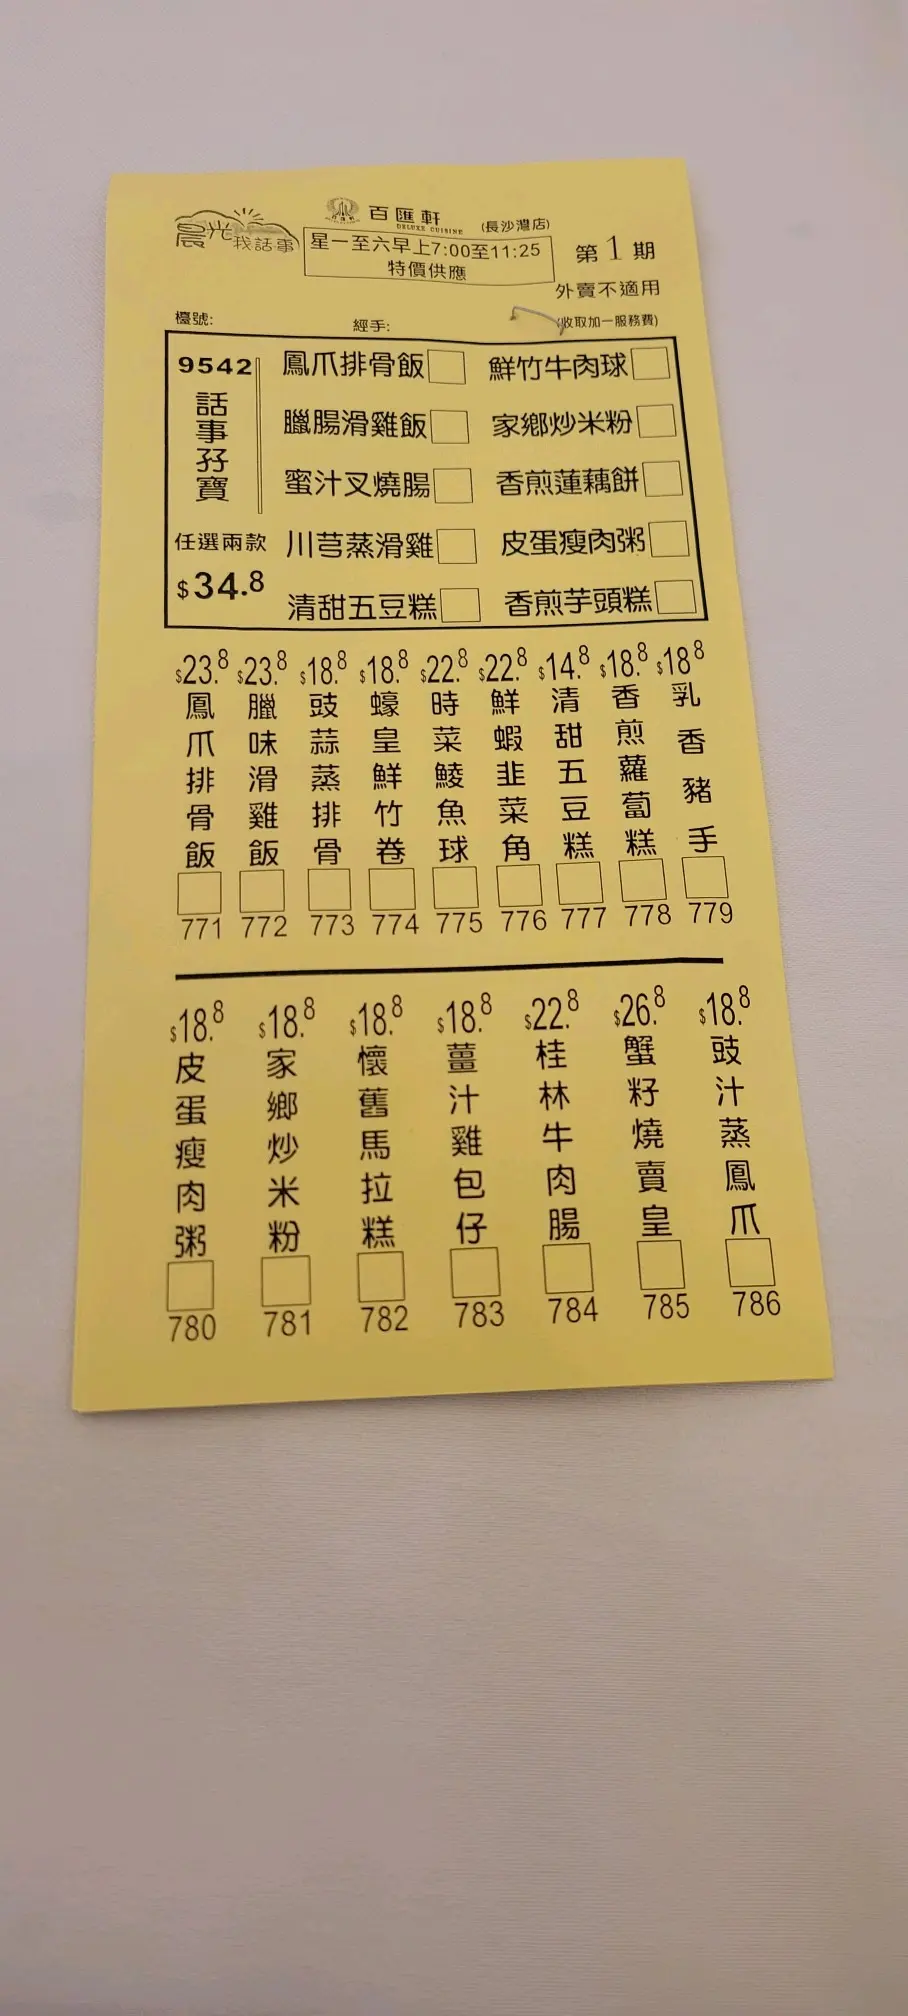 晨光我話事
百匯軒
DELUXE CUISINE
(長沙灣店)
星一至六早上7:00至11:25
特價供應
第1期
外賣不適用
(收取加一服務費)
檯號:
經手:
9542
話事孖寶
任選兩款
$34.8
鳳爪排骨飯
鮮竹牛肉球
臘腸滑雞飯
家鄉炒米粉
蜜汁叉燒腸
香煎蓮藕餅
川芎蒸滑雞
皮蛋瘦肉粥
清甜五豆糕
香煎芋頭糕
$23.8 鳳爪排骨飯 771
$23.8 臘味滑雞飯 772
$18.8 豉蒜蒸排骨 773
$18.8 蠔皇鮮竹卷 774
$22.8 時菜鯪魚球 775
$22.8 鮮蝦韭菜角 776
$14.8 清甜五豆糕 777
$18.8 香煎蘿蔔糕 778
$18.8 乳香豬手 779
$18.8 皮蛋瘦肉粥 780
$18.8 家鄉炒米粉 781
$18.8 懷舊馬拉糕 782
$18.8 薑汁雞包仔 783
$22.8 桂林牛肉腸 784
$26.8 蟹籽燒賣皇 785
$18.8 豉汁蒸鳳爪 786